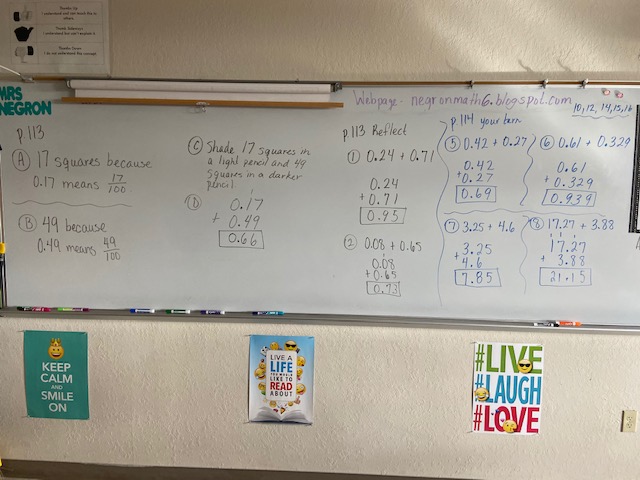 Thumbs Up
I understand well and teach this to others.
Thumb Sideways
I understand but can't explain it.
Thumbs Down
I do not understand this concept.
MRS
NEGRON
Webpage - negronmath6.blogspot.com
10, 12, 14, 15, 16
p.113
A 17 squares because
0.17 means 17/100
B 49 because
0.49 means 49/100
C Shade 17 squares in
a light pencil and 49
squares in a darker
pencil
D
1
0.17
+ 0.49
0.66
p.113 Reflect
1 0.24 + 0.71
0.24
+ 0.71
0.95
2 0.08 + 0.65
1
0.08
+ 0.65
0.73
p.114 your turn
5 0.42 + 0.27
0.42
+ 0.27
0.69
6 0.61 + 0.329
0.61
+ 0.329
0.939
7 3.25 + 4.6
3.25
+ 4.6
7.85
8 17.27 + 3.88
1 1 1
17.27
+ 3.88
21.15
KEEP
CALM
AND
SMILE
ON
LIVE A
LIFE
YOU WOULD
LIKE TO
READ
ABOUT
#LIVE
#LAUGH
#LOVE